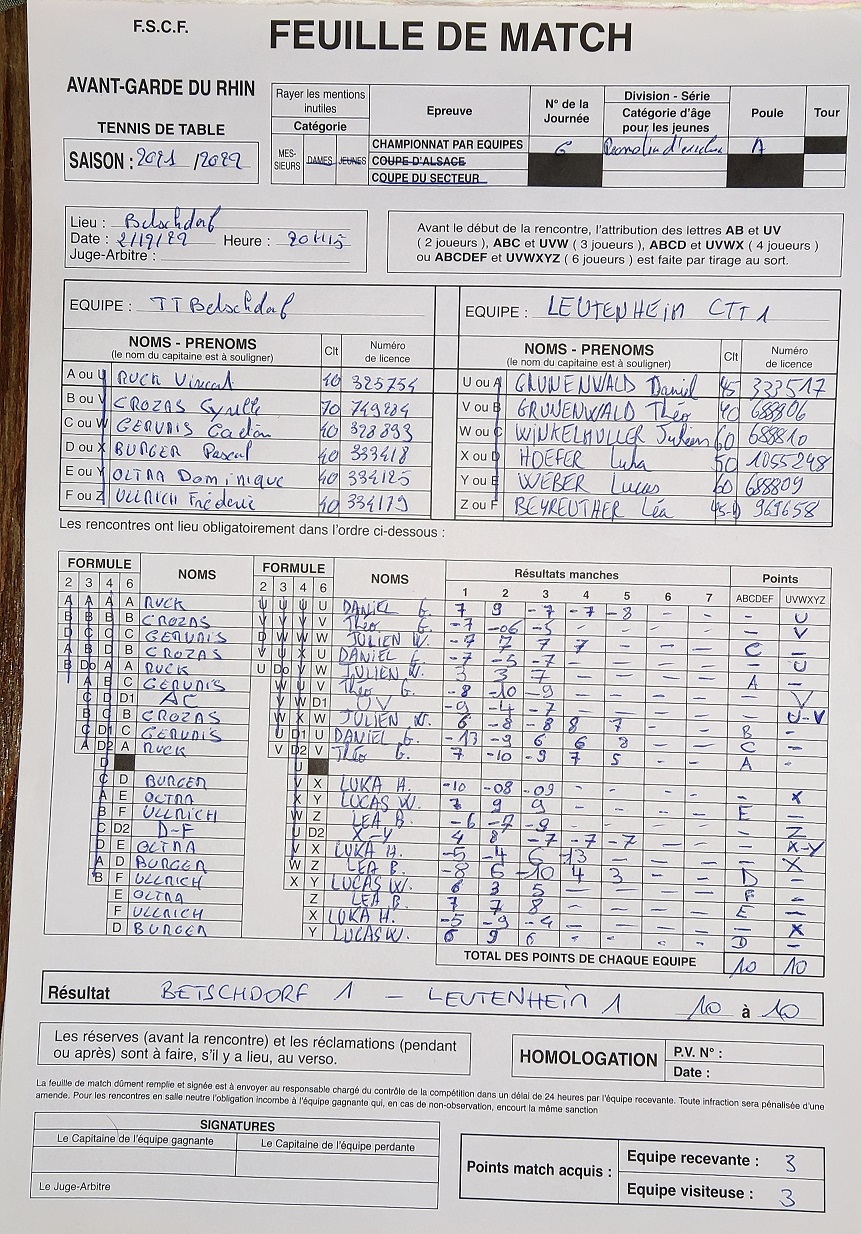 F.S.C.F.
FEUILLE DE MATCH
AVANT-GARDE DU RHIN
TENNIS DE TABLE
SAISON : 2021 /2022
Rayer les mentions inutiles
Catégorie
MES-SIEURS DAMES JEUNES
Epreuve
CHAMPIONNAT PAR EQUIPES
COUPE D'ALSACE
COUPE DU SECTEUR
N° de la Journée
6
Division - Série
Catégorie d'âge pour les jeunes
Poule
A
Tour
Lieu : Betschdorf
Date : Heure : 20H15
Juge-Arbitre :
Avant le début de la rencontre, l'attribution des lettres AB et UV
( 2 joueurs ), ABC et UVW ( 3 joueurs ), ABCD et UVWX ( 4 joueurs )
ou ABCDEF et UVWXYZ ( 6 joueurs ) est faite par tirage au sort.
EQUIPE : TT Betschdorf
NOMS - PRENOMS (le nom du capitaine est à souligner) Clt Numéro de licence
A ou U RUCK Vincent 40 325754
B ou V CROZAS Cyrille 70 749284
C ou W GERVAIS 40 328893
D ou X BURGER Pascal 40 333418
E ou Y OLTRA Dominique 40 334125
F ou Z ULLRICH Fréderic 40 334179
EQUIPE : LEUTENHEIM CTT 1
NOMS - PRENOMS (le nom du capitaine est à souligner) Clt Numéro de licence
U ou A GRUNENWALD Daniel 45 333517
V ou B GRUNENWALD Théo 40 688806
W ou C WINKELMULLER Julien 60 688810
X ou D HOEFER Luka 50 1055248
Y ou E WEBER Lucas 60 688809
Z ou F BEYREUTHER Léa 45-D 961658
Les rencontres ont lieu obligatoirement dans l'ordre ci-dessous :
FORMULE NOMS FORMULE NOMS Résultats manches Points
2 3 4 6 2 3 4 6 1 2 3 4 5 6 7 ABCDEF UVWXYZ
A A A A RUCK U U U U DANIEL G. 7 9 -7 -7 -8 - - - U
B B B B CROZAS V V V V Théo G. -7 -06 -5 - - - - - V
D C C C GERVAIS D W W W JULIEN W. -7 7 7 7 - - - C -
A B D B CROZAS V U X U DANIEL G. -7 -5 -7 - - - - - U
B Do A A RUCK U Do V W JULIEN W. 3 3 7 - - - - A -
A B C GERVAIS W U V Théo G. -8 -10 -9 - - - - - V
C D D1 AC V W D1 UV -9 -4 -7 - - - - - U-V
B C B CROZAS W X W JULIEN W. 6 -8 -8 8 7 - - B -
C D1 C GERVAIS U D1 U DANIEL G. -13 -9 6 6 8 - - C -
A D2 A RUCK V D2 V Théo G. 7 -10 -9 7 5 - - A -
D U
C D BURGER V X LUKA H. -10 -08 -09 - - - - - X
A E OLTRA X Y LUCAS W. 7 9 9 - - - - E -
B F ULLRICH W Z LEA B. -6 -7 -9 - - - - - Z
C D2 D-F U D2 X-Y 4 8 -7 -7 -7 - - - X-Y
D E OLTRA V X LUKA H. -5 -4 6 -13 - - - - X
A D BURGER W Z LEA B. -8 6 -10 4 3 - - D -
B F ULLRICH X Y LUCAS W. 6 3 5 - - - - F -
E OLTRA Z LEA B. 7 7 8 - - - - E -
F ULLRICH X LUKA H. -5 -9 -4 - - - - - X
D BURGER Y LUCAS W. 6 9 6 - - - - D -
TOTAL DES POINTS DE CHAQUE EQUIPE 10 10
Résultat BETSCHDORF 1 - LEUTENHEIM 1 10 à 10
Les réserves (avant la rencontre) et les réclamations (pendant
ou après) sont à faire, s'il y a lieu, au verso.
HOMOLOGATION
P.V. N° :
Date :
La feuille de match dûment remplie et signée est à envoyer au responsable chargé du contrôle de la compétition dans un délai de 24 heures par l'équipe recevante. Toute infraction sera pénalisée d'une
amende. Pour les rencontres en salle neutre l'obligation incombe à l'équipe gagnante qui, en cas de non-observation, encourt la même sanction
SIGNATURES
Le Capitaine de l'équipe gagnante Le Capitaine de l'équipe perdante
Le Juge-Arbitre
Points match acquis :
Equipe recevante : 3
Equipe visiteuse : 3